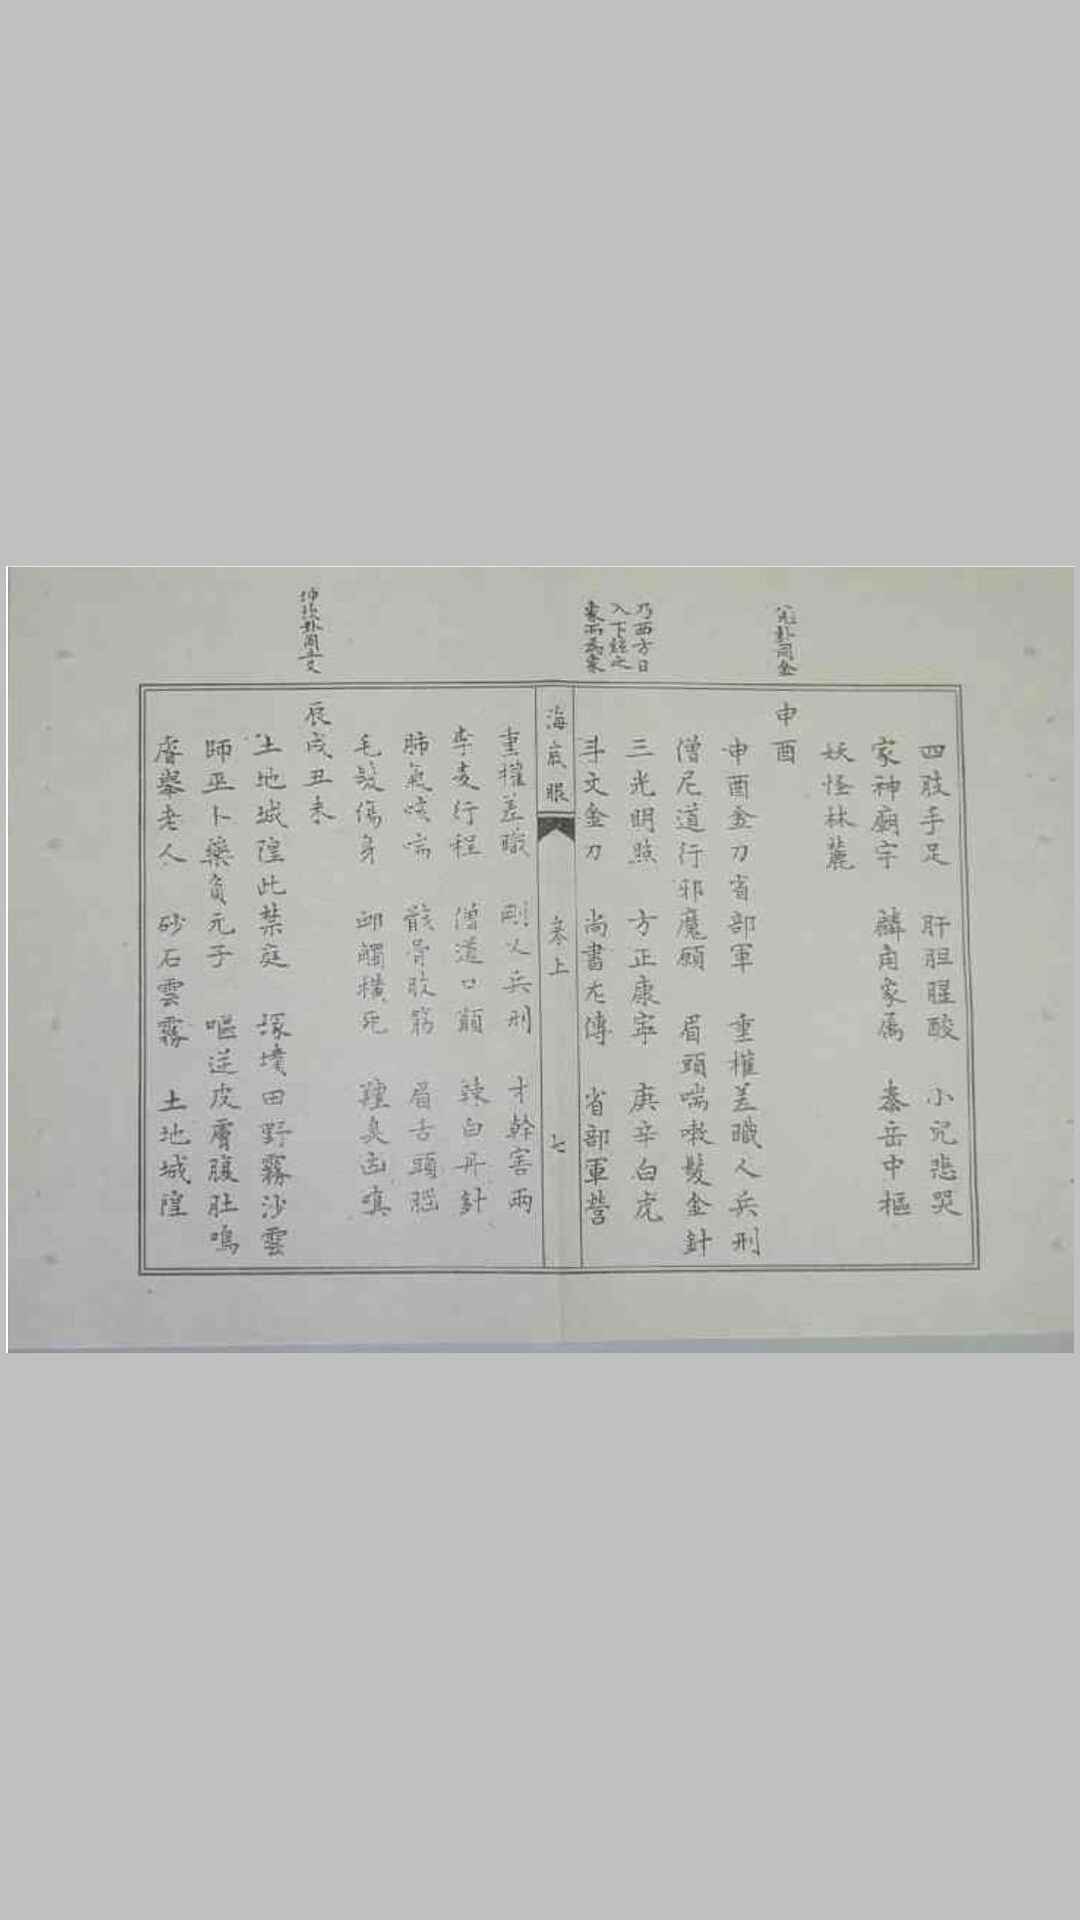 四肢手足 肝胆腥酸 小兒悲哭
家神廟宇 麟角家属 泰岳中樞
妖怪林麓
申酉
申酉金刀省部軍 重權差職人兵刑
僧尼道行邪魔願 眉頭喘嗽髮金針
三光明照 方正康寧 庚辛白虎
斗文金刀 尚書左傳 省部軍營
乃西方日
入下經之
海底眼 卷上 七
重權差職 剛乂兵刑 才幹害兩
李麦行程 僧道口顛 辣白丹針
肺氣咳喘 骸骨肢筋 眉舌頭腦
毛髮傷身 邮觸横死 羶臭齒嗔
辰戌丑未
土地城隍此禁庭 塚墳田野霧沙雲
師巫卜藥負元子 嘔逆皮膚腹肚鳴
眷舉老人 砂石雲霧 土地城隍